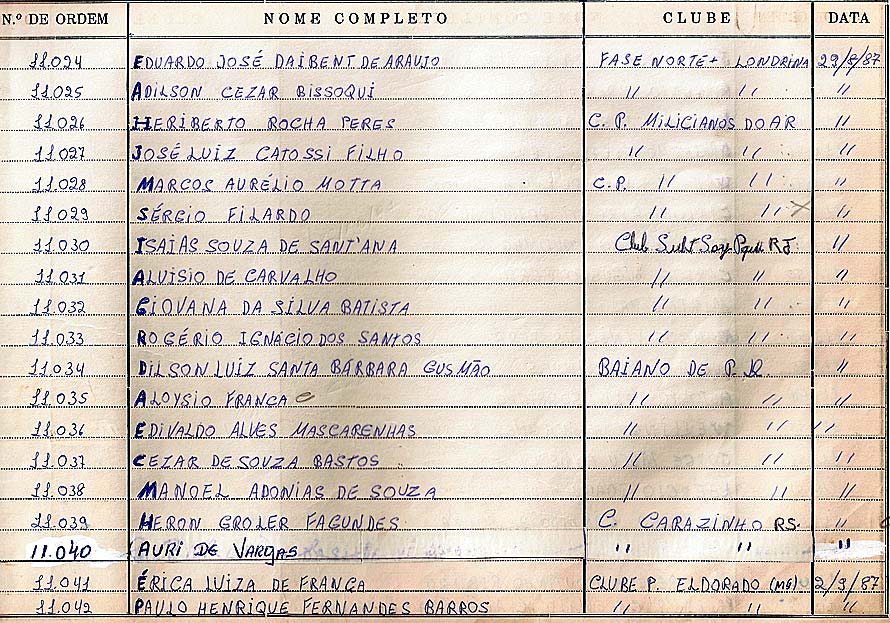 N.º DE ORDEM NOME COMPLETO CLUBE DATA
11.024 EDUARDO JOSÉ DAIBENT DE ARAUJO FASE NORTE + LONDRINA 29/8/87
11.025 ADILSON CEZAR BISSOQUI " " "
11.026 HERIBERTO ROCHA PERES C. P. MILICIANOS DO AR "
11.027 JOSÉ LUIZ CATOSSI FILHO " " "
11.028 MARCOS AURÉLIO MOTTA C.P. " " "
11.029 SÉRGIO FILARDO " " "
11.030 ISAIAS SOUZA DE SANT'ANA Club RJ "
11.031 ALUISIO DE CARVALHO " " "
11.032 GIOVANA DA SILVA BATISTA " " "
11.033 ROGÉRIO IGNÁCIO DOS SANTOS " " "
11.034 DILSON LUIZ SANTA BÁRBARA GUSMÃO BAIANO DE P. "
11.035 ALOYSIO FRANCA " " "
11.036 EDIVALDO ALVES MASCARENHAS " " "
11.037 CEZAR DE SOUZA BASTOS " " "
11.038 MANOEL ADONIAS DE SOUZA " " "
11.039 HERON GROLER FAGUNDES C. CARAZINHO RS. "
11.040 AURI DE VARGAS " " "
11.041 ÉRICA LUIZA DE FRANÇA CLUBE P. ELDORADO (MG) 2/3/87
11.042 PAULO HENRIQUE FERNANDES BARROS " " "